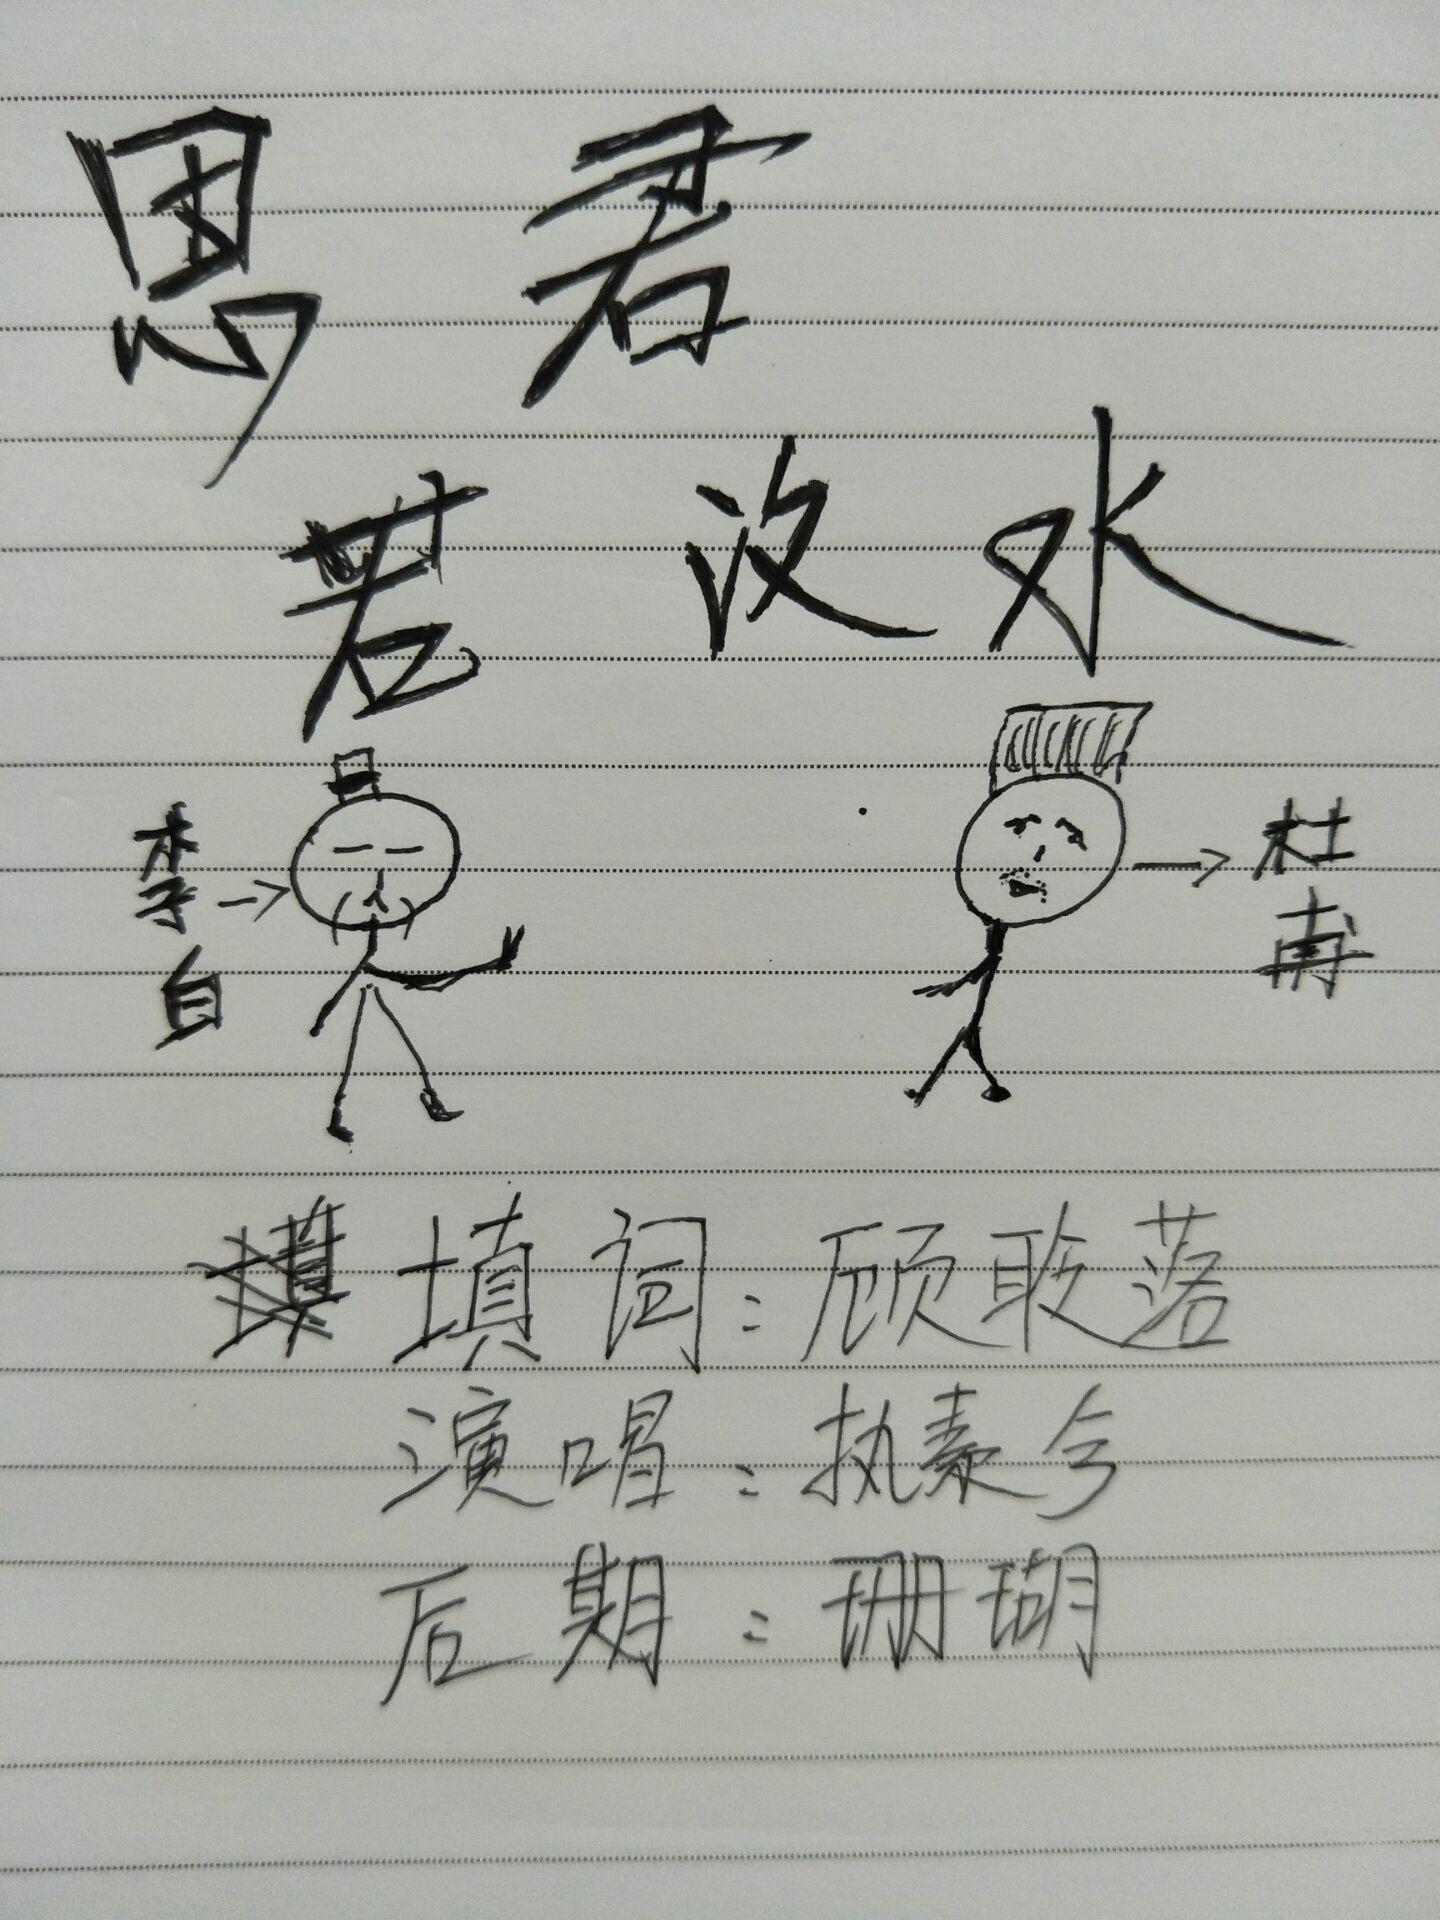 思君
若汶水
李白
杜甫
填词:顾敢落
演唱:执素兮
后期:珊瑚